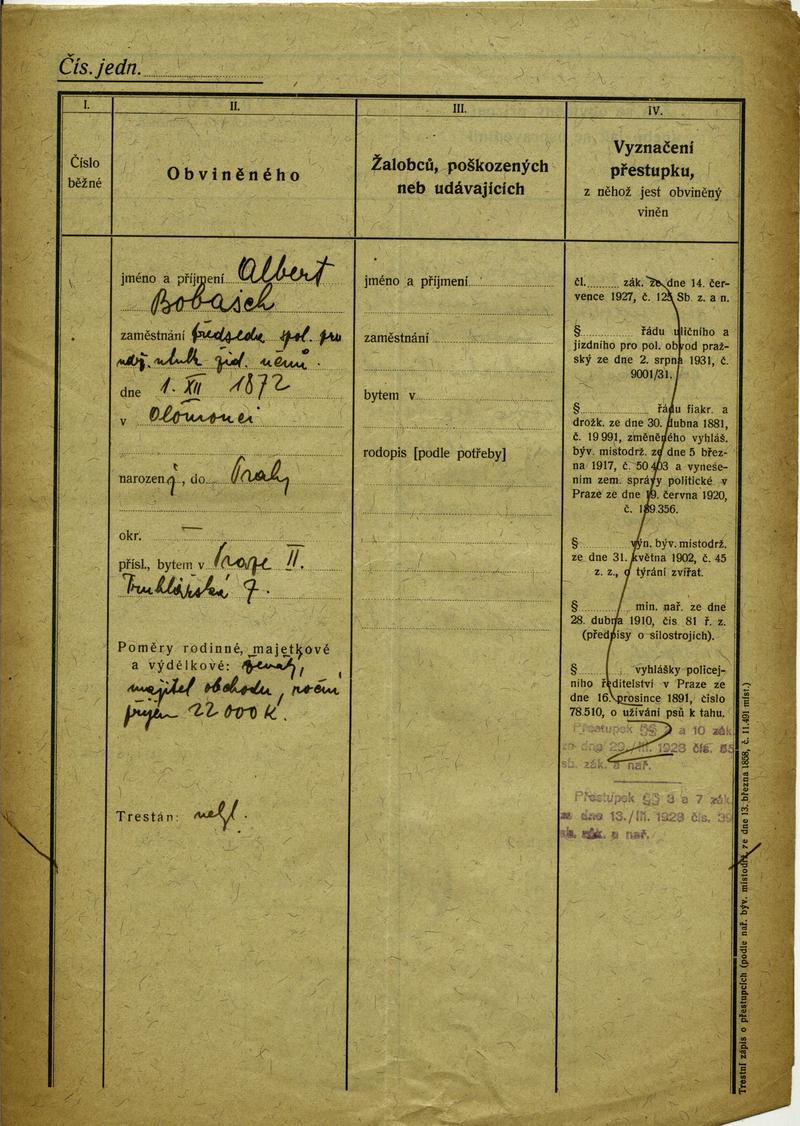 Čís. jedn.
I.
II.
III.
IV.
Číslo
běžné
Obviněného
Žalobců, poškozených
neb udávajících
Vyznačení
přestupku,
z něhož jest obviněný
viněn
jméno a příjmení Albert
Bobasch
zaměstnání předseda spol. pro
žid.
dne 1. XII 1872
v Olomouci
narozený, do Prahy
okr. —
přísl., bytem v Praze II.
Truhlářská 7.
Poměry rodinné, majetkové
a výdělkové: ženatý,
majitel obchodu, roční
příjem 22 000 K.
Trestán:
jméno a příjmení
zaměstnání
bytem v
rodopis [podle potřeby]
čl. zák. ze dne 14. čer-
vence 1927, č. 125 Sb. z. a n.
§ řádu uličního a
jízdního pro pol. obvod praž-
ský ze dne 2. srpna 1931, č.
9001/31.
§ řádu fiakr. a
drožk. ze dne 30. dubna 1881,
č. 19 991, změněného vyhláš.
býv. místodrž. ze dne 5 břez-
na 1917, č. 50 403 a vynese-
ním zem. správy politické v
Praze ze dne 19. června 1920,
č. 189 356.
§ výn. býv. místodrž.
ze dne 31. května 1902, č. 45
z. z., o týrání zvířat.
§ min. nař. ze dne
28. dubna 1910, čís 81 ř. z.
(předpisy o silostrojích).
§ vyhlášky policej-
ního ředitelství v Praze ze
dne 16. prosince 1891, číslo
78.510, o užívání psů k tahu.
Přestupek §§ a 10 zák.
ze dne 29./III. 1928 čís. 55
sb. zák. a nař.
Přestupek §§ 3 a 7 zák.
ze dne 13./III. 1928 čís. 39
sb. zák. a nař.
Trestní zápis o přestupcích (podle nař. býv. místodrž. ze dne 13. března 1858, č. 11.491 míst.)